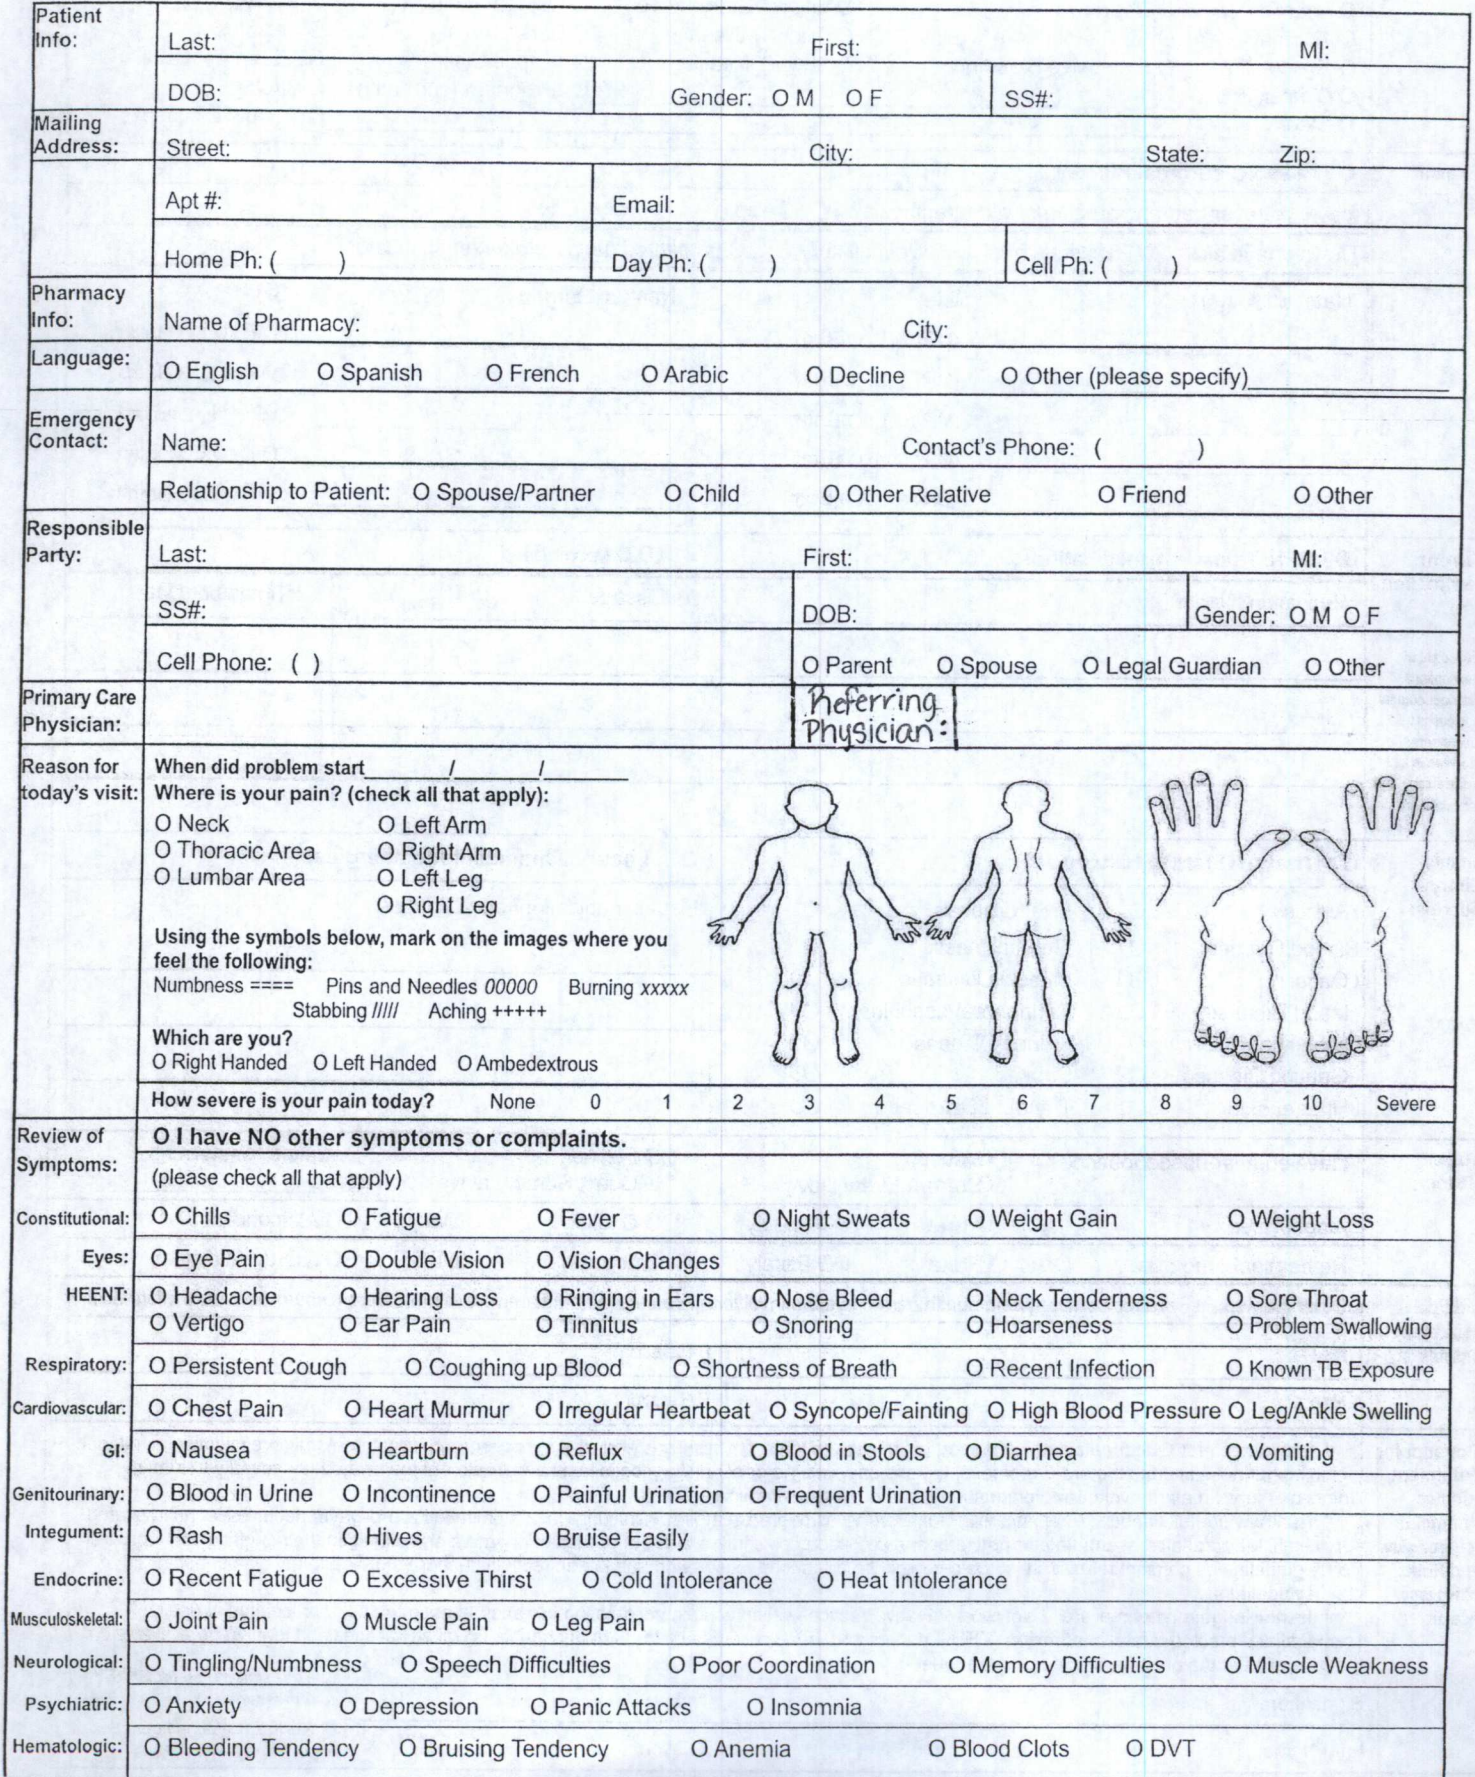 Patient Info: Last: First: MI:
DOB: Gender: O M O F SS#:
Mailing Address: Street: City: State: Zip:
Apt #: Email:
Home Ph: ( ) Day Ph: ( ) Cell Ph: ( )
Pharmacy Info: Name of Pharmacy: City:
Language: O English O Spanish O French O Arabic O Decline O Other (please specify)____________
Emergency Contact: Name: Contact's Phone: ( )
Relationship to Patient: O Spouse/Partner O Child O Other Relative O Friend O Other
Responsible Party: Last: First: MI:
SS#: DOB: Gender: O M O F
Cell Phone: ( ) O Parent O Spouse O Legal Guardian O Other
Primary Care Physician: Referring Physician:
Reason for today's visit: When did problem start______/______/______
Where is your pain? (check all that apply):
O Neck O Left Arm
O Thoracic Area O Right Arm
O Lumbar Area O Left Leg
O Right Leg
Using the symbols below, mark on the images where you
feel the following:
Numbness ==== Pins and Needles 00000 Burning xxxxx
Stabbing ///// Aching +++++
Which are you?
O Right Handed O Left Handed O Ambedextrous
How severe is your pain today? None 0 1 2 3 4 5 6 7 8 9 10 Severe
Review of Symptoms: O I have NO other symptoms or complaints.
(please check all that apply)
Constitutional: O Chills O Fatigue O Fever O Night Sweats O Weight Gain O Weight Loss
Eyes: O Eye Pain O Double Vision O Vision Changes
HEENT: O Headache O Hearing Loss O Ringing in Ears O Nose Bleed O Neck Tenderness O Sore Throat
O Vertigo O Ear Pain O Tinnitus O Snoring O Hoarseness O Problem Swallowing
Respiratory: O Persistent Cough O Coughing up Blood O Shortness of Breath O Recent Infection O Known TB Exposure
Cardiovascular: O Chest Pain O Heart Murmur O Irregular Heartbeat O Syncope/Fainting O High Blood Pressure O Leg/Ankle Swelling
GI: O Nausea O Heartburn O Reflux O Blood in Stools O Diarrhea O Vomiting
Genitourinary: O Blood in Urine O Incontinence O Painful Urination O Frequent Urination
Integument: O Rash O Hives O Bruise Easily
Endocrine: O Recent Fatigue O Excessive Thirst O Cold Intolerance O Heat Intolerance
Musculoskeletal: O Joint Pain O Muscle Pain O Leg Pain
Neurological: O Tingling/Numbness O Speech Difficulties O Poor Coordination O Memory Difficulties O Muscle Weakness
Psychiatric: O Anxiety O Depression O Panic Attacks O Insomnia
Hematologic: O Bleeding Tendency O Bruising Tendency O Anemia O Blood Clots O DVT